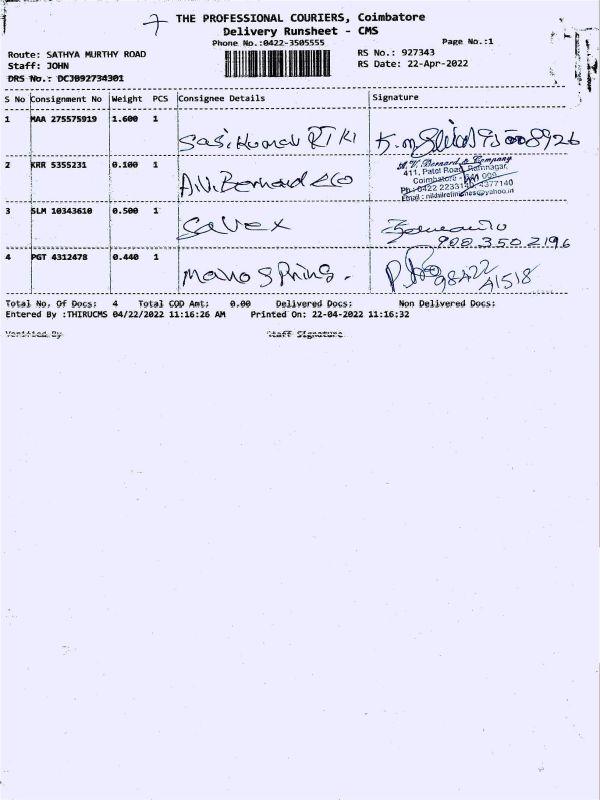 THE PROFESSIONAL COURIERS, Coimbatore
Delivery Runsheet - CMS
Phone No.:0422-3505555
Page No.:1
Route: SATHYA MURTHY ROAD
RS No.: 927343
Staff: JOHN
RS Date: 22-Apr-2022
DRS No.: DCJB92734301
S No Consignment No Weight PCS Consignee Details Signature
1 MAA 275575919 1.600 1
2 KRR 5355231 0.100 1 A.V. Bernard & Co
A.V. Bernard & Company
411, Patel Road, Ramnagar,
Coimbatore - 641 009
Ph : 0422 2233140, 4377140
3 SLM 10343610 0.500 1 Savex
900 350 2196
4 PGT 4312478 0.440 1 Mano Spring.
98422
41518
Total No. Of Docs: 4 Total COD Amt: 0.00 Delivered Docs: Non Delivered Docs:
Entered By :THIRUCMS 04/22/2022 11:16:26 AM Printed On: 22-04-2022 11:16:32
Verified By Staff Signature